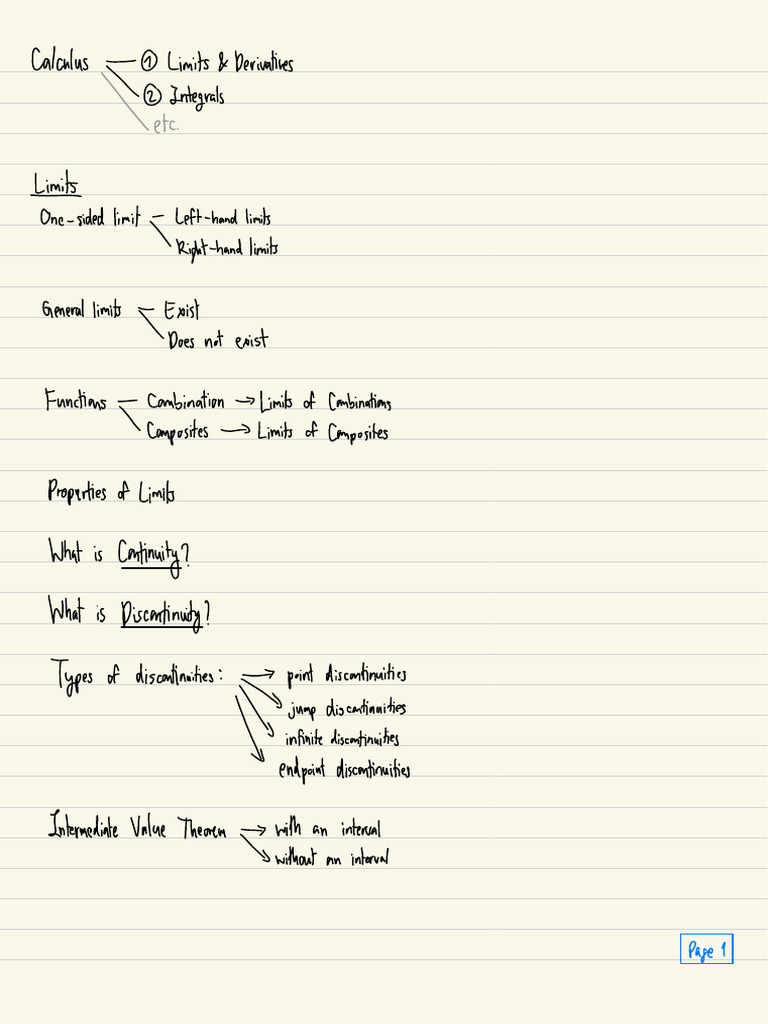 Calculus ① Limits & Derivatives
② Integrals
etc.
Limits
One-sided limit Left-hand limits
Right-hand limits
General limits Exist
Does not exist
Functions Combination → Limits of Combinations
Composites → Limits of Composites
Properties of Limits
What is Continuity?
What is Discontinuity?
Types of discontinuities: → point discontinuities
jump discontinuities
infinite discontinuities
endpoint discontinuities
Intermediate Value Theorem → with an interval
without an interval
Page 1